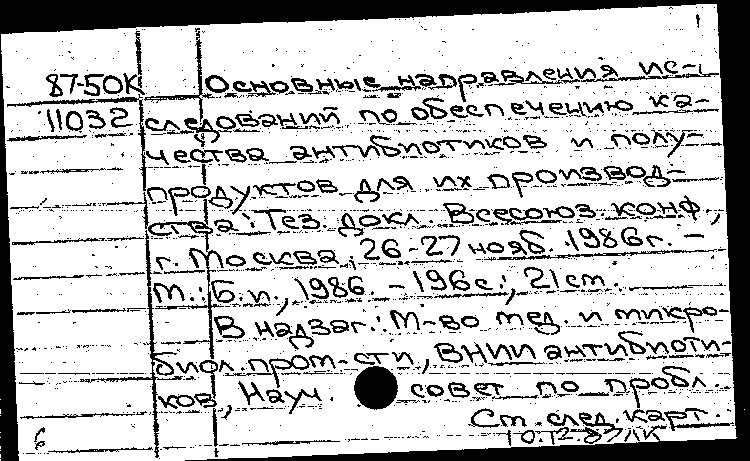 1
87-50К Основные направления ис-
11032 следований по обеспечению ка-
чества антибиотиков и полу-
продуктов для их производ-
ства: Тез. докл. Всесоюз. конф.,
г. Москва, 26-27 нояб. 1986г. –
М.: Б.и., 1986. – 196с.; 21 см.
В надзаг.: М-во мед. и микро-
биол. пром-сти, ВНИИ антибиоти-
ков, Науч. совет по пробл.
См. след. карт.
6 10.12.87 ЛК